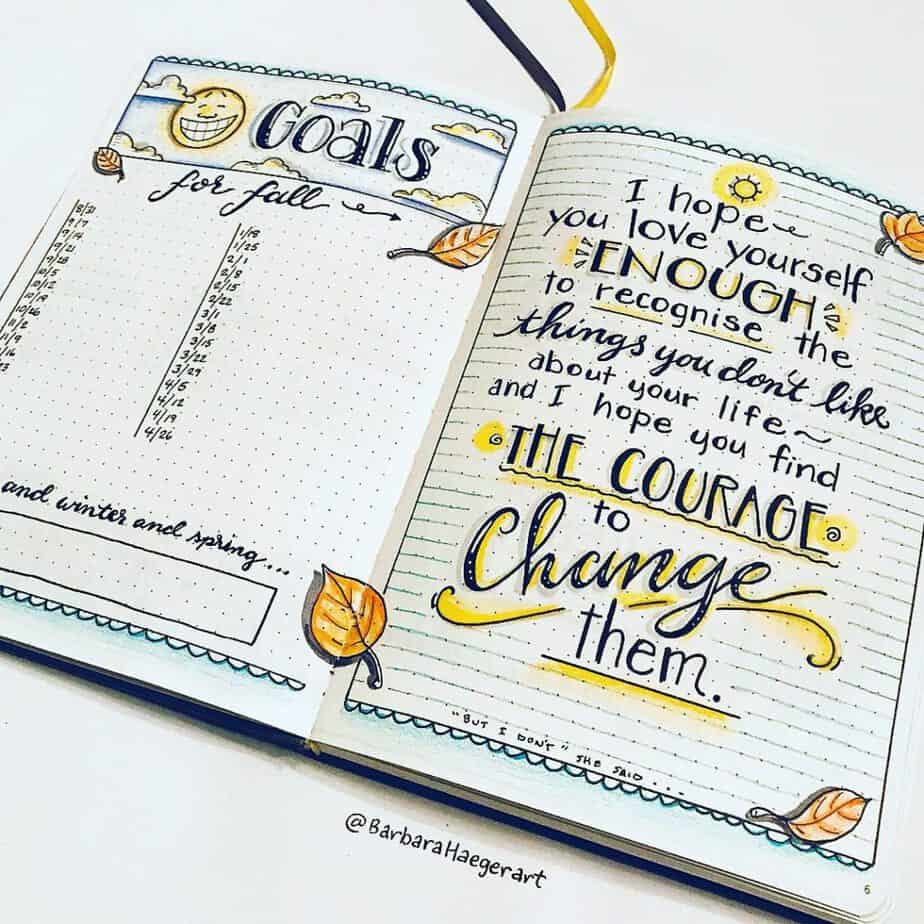 Goals
for fall
8/31
9/7
9/14
9/21
9/28
10/5
10/12
10/19
10/26
11/2
11/9
/16
1/18
1/25
2/1
2/8
2/15
2/22
3/1
3/8
3/15
3/22
3/29
4/5
4/12
4/19
4/26
and winter and spring...
I hope
you love yourself
ENOUGH
to recognise the
things you don't like
about your life~
and I hope you find
THE COURAGE
to
Change
them.
"BUT I DON'T" SHE SAID....
6
@BarbaraHaegerart